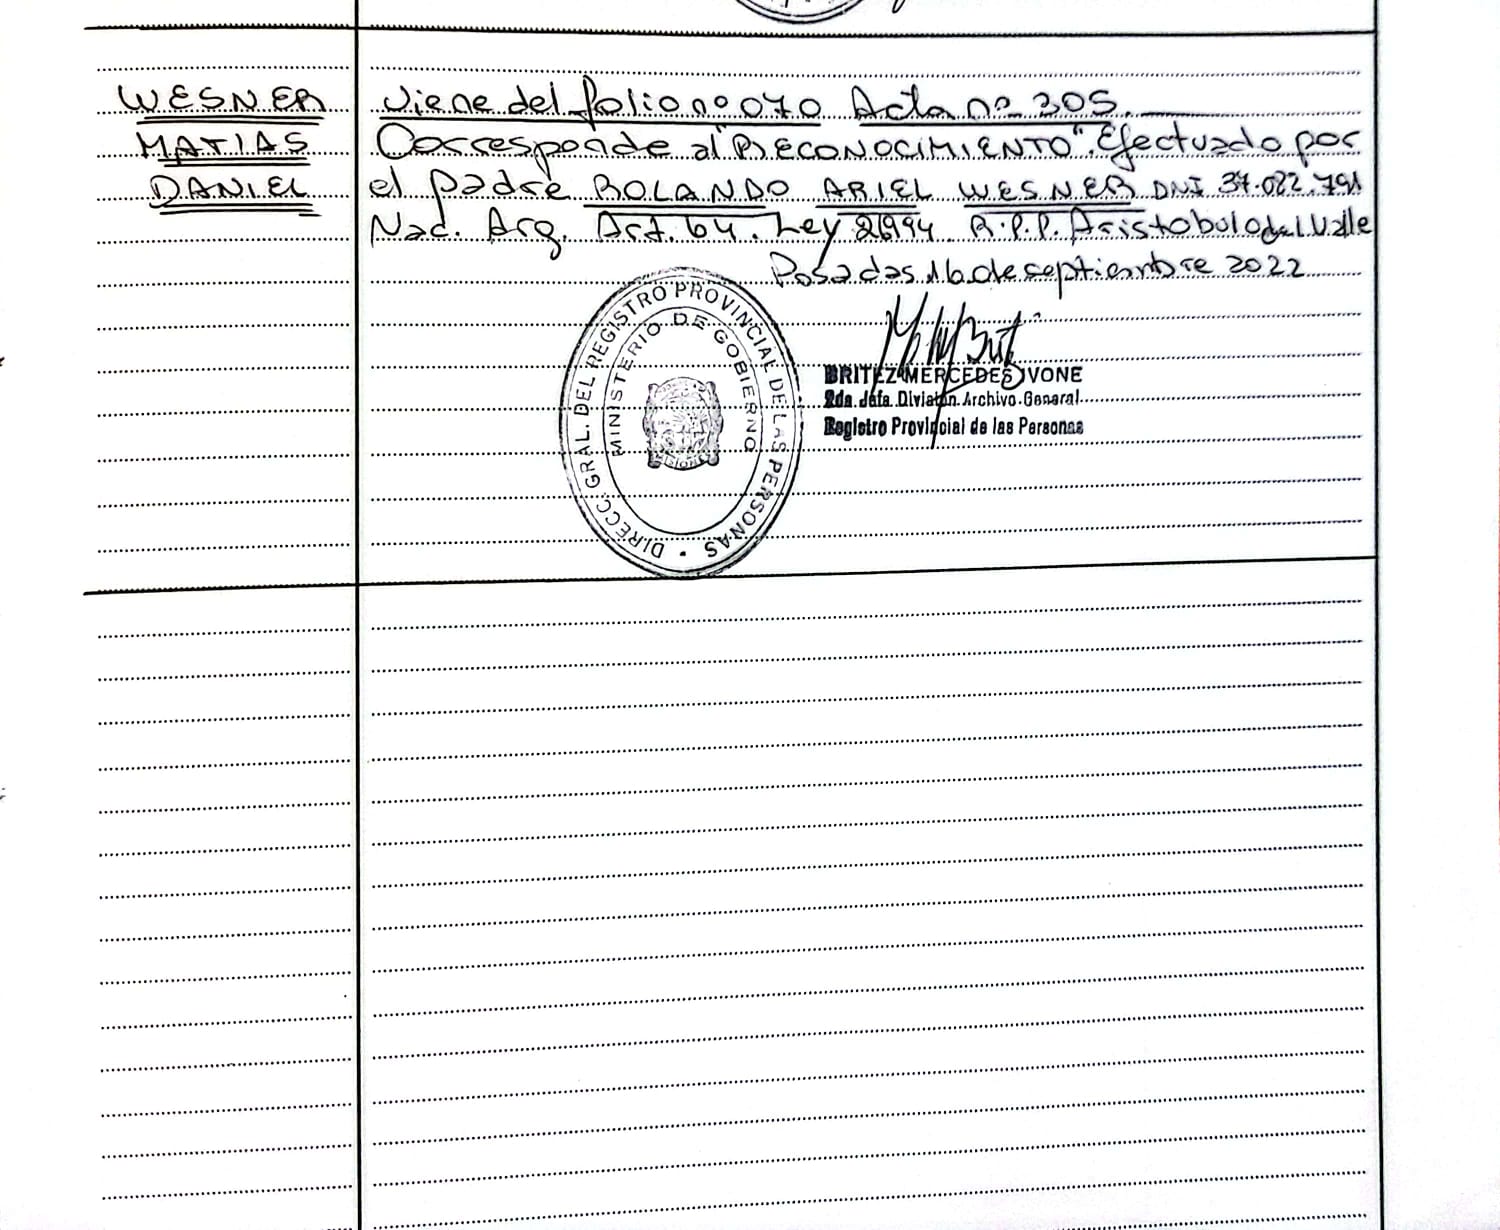 WESNER
MATIAS
DANIEL
Viene del folio nº 070 Acta nº 305.
Corresponde al "RECONOCIMIENTO". Efectuado por
el padre ROLANDO ARIEL WESNER DNI 37.082.791
Nac. Arg. Art. 64. Ley 26994 R.P.P. Aristobulo del Valle
Posadas 16 de septiembre 2022
DIRECC. GRAL. DEL REGISTRO PROVINCIAL DE LAS PERSONAS
MINISTERIO DE GOBIERNO
MISIONES
BRITEZ MERCEDES IVONE
2da. Jefa. División Archivo General
Registro Provincial de las Personas